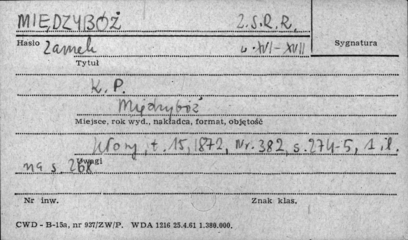 MIĘDZYBÓŻ Z.S.R.R.
Hasło Zamek w. XVI-XVIII Sygnatura
Tytuł
K. P.
Międzybóż
Miejsce, rok wyd., nakładca, format, objętość
Kłosy, t. 15, 1872, Nr. 382, s. 274-5, 1 il.
Uwagi
na s. 268
Nr inw. Znak klas.
CWD - B-15a, nr 927/ZW/P. WDA 1216 25.4.61 1.380.000.